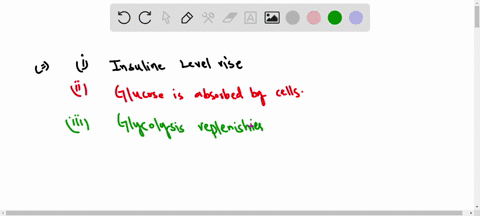 3) (i) Insuline Level rise
(ii) Glucose is absorbed by cells.
(iii) Glycolysis replenishies